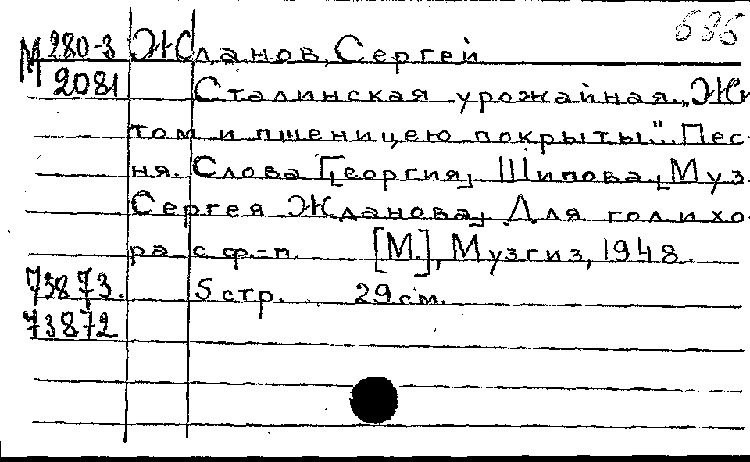 695
М 280-3 Жданов, Сергей
2081 Сталинская урожайная. „Жи
том и пшеницею покрыты“... Пес-
ня. Слова Г[еоргия] Шипова, [Муз.
Сергея Жданова] Для гол. и хо-
ра с ф.-п. [М.], Музгиз, 1948.
73873. 5 стр. 29 см.
73872